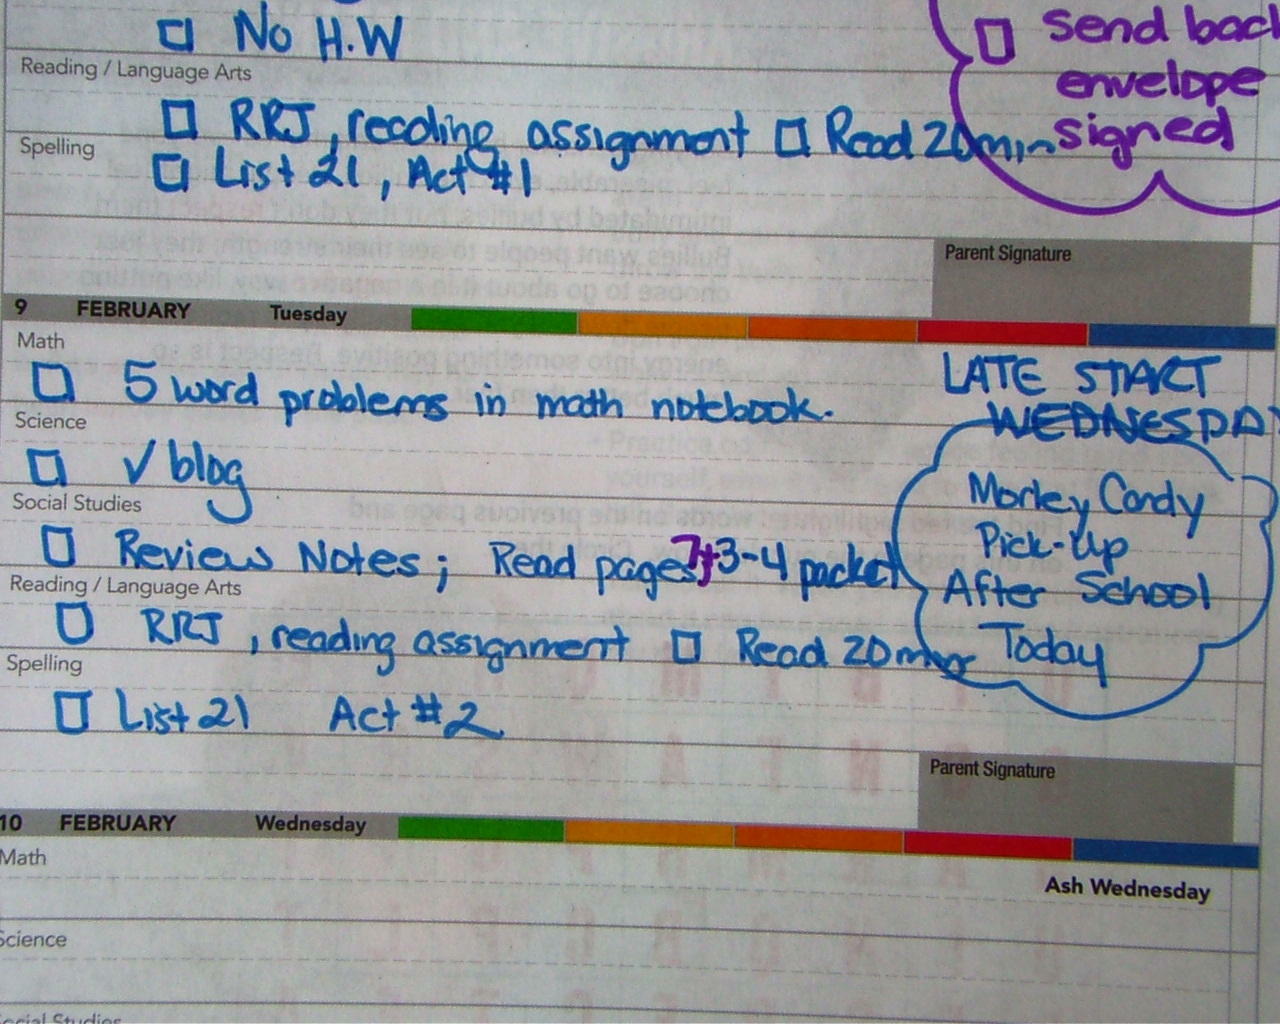 No H.W
send back
Reading / Language Arts
envelope
RRJ, reading assignment Read 20 min
signed
Spelling
List 21, Act #1
Parent Signature
9 FEBRUARY Tuesday
Math
LATE START
5 word problems in math notebook.
WEDNESDAY
Science
√ blog
Morley Candy
Social Studies
Pick-Up
Review Notes; Read pages 7+3-4 packet
After School
Reading / Language Arts
RRJ, reading assignment Read 20 min
Today
Spelling
List 21 Act #2
Parent Signature
10 FEBRUARY Wednesday
Math
Ash Wednesday
Science
Social Studies